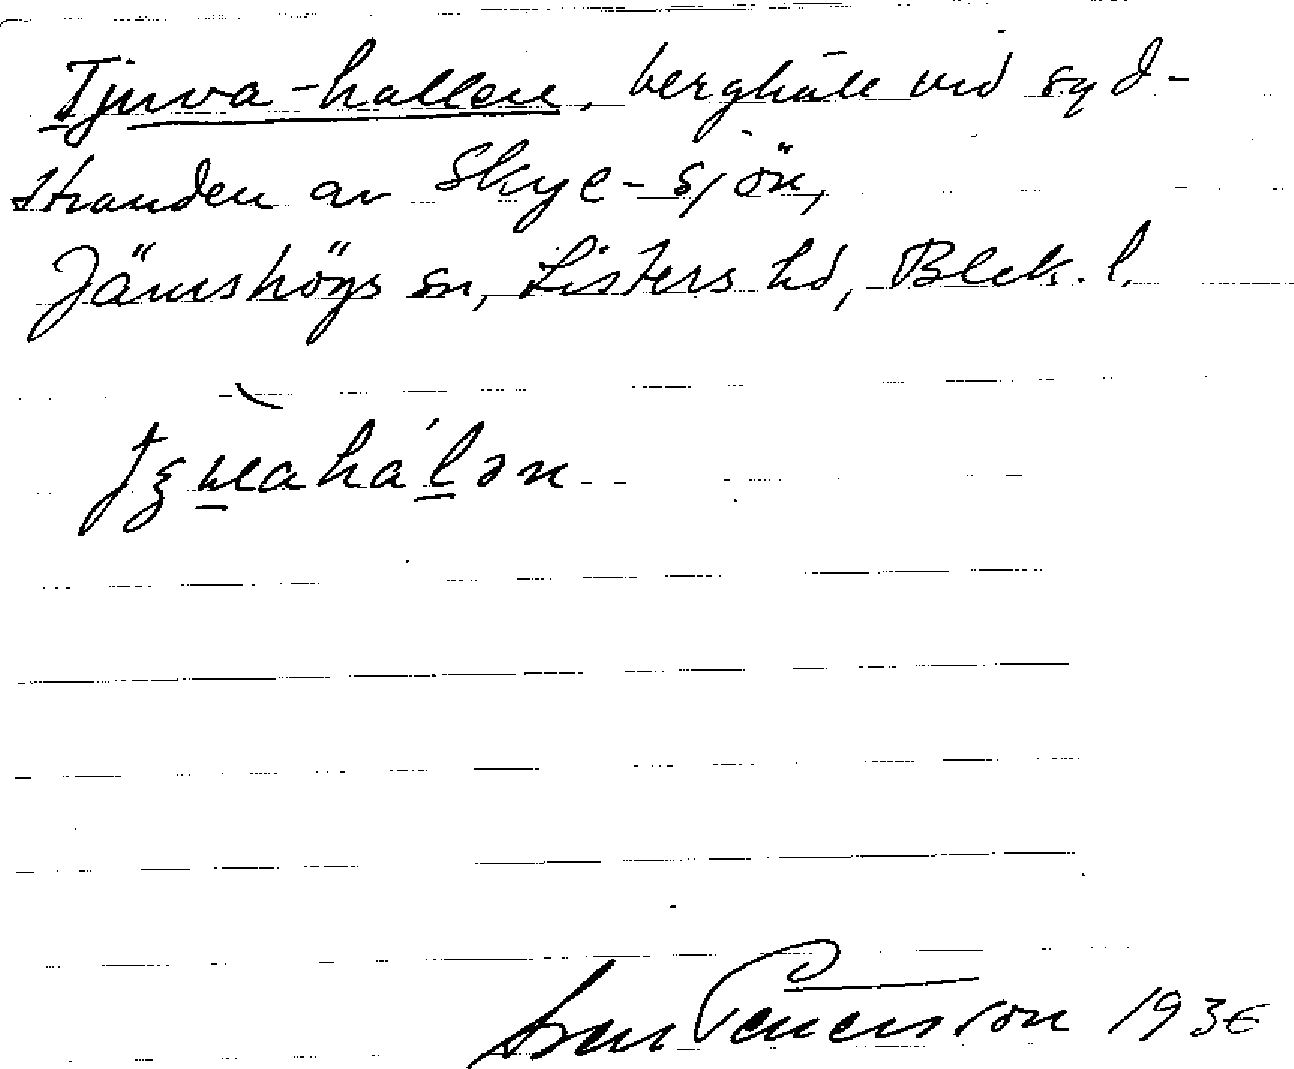 Tjuva-hallen, berghäll vid syd-
stranden av Skye-sjön,
Jämshögs sn, Listers hd, Blek. l.
Pettersson 1936